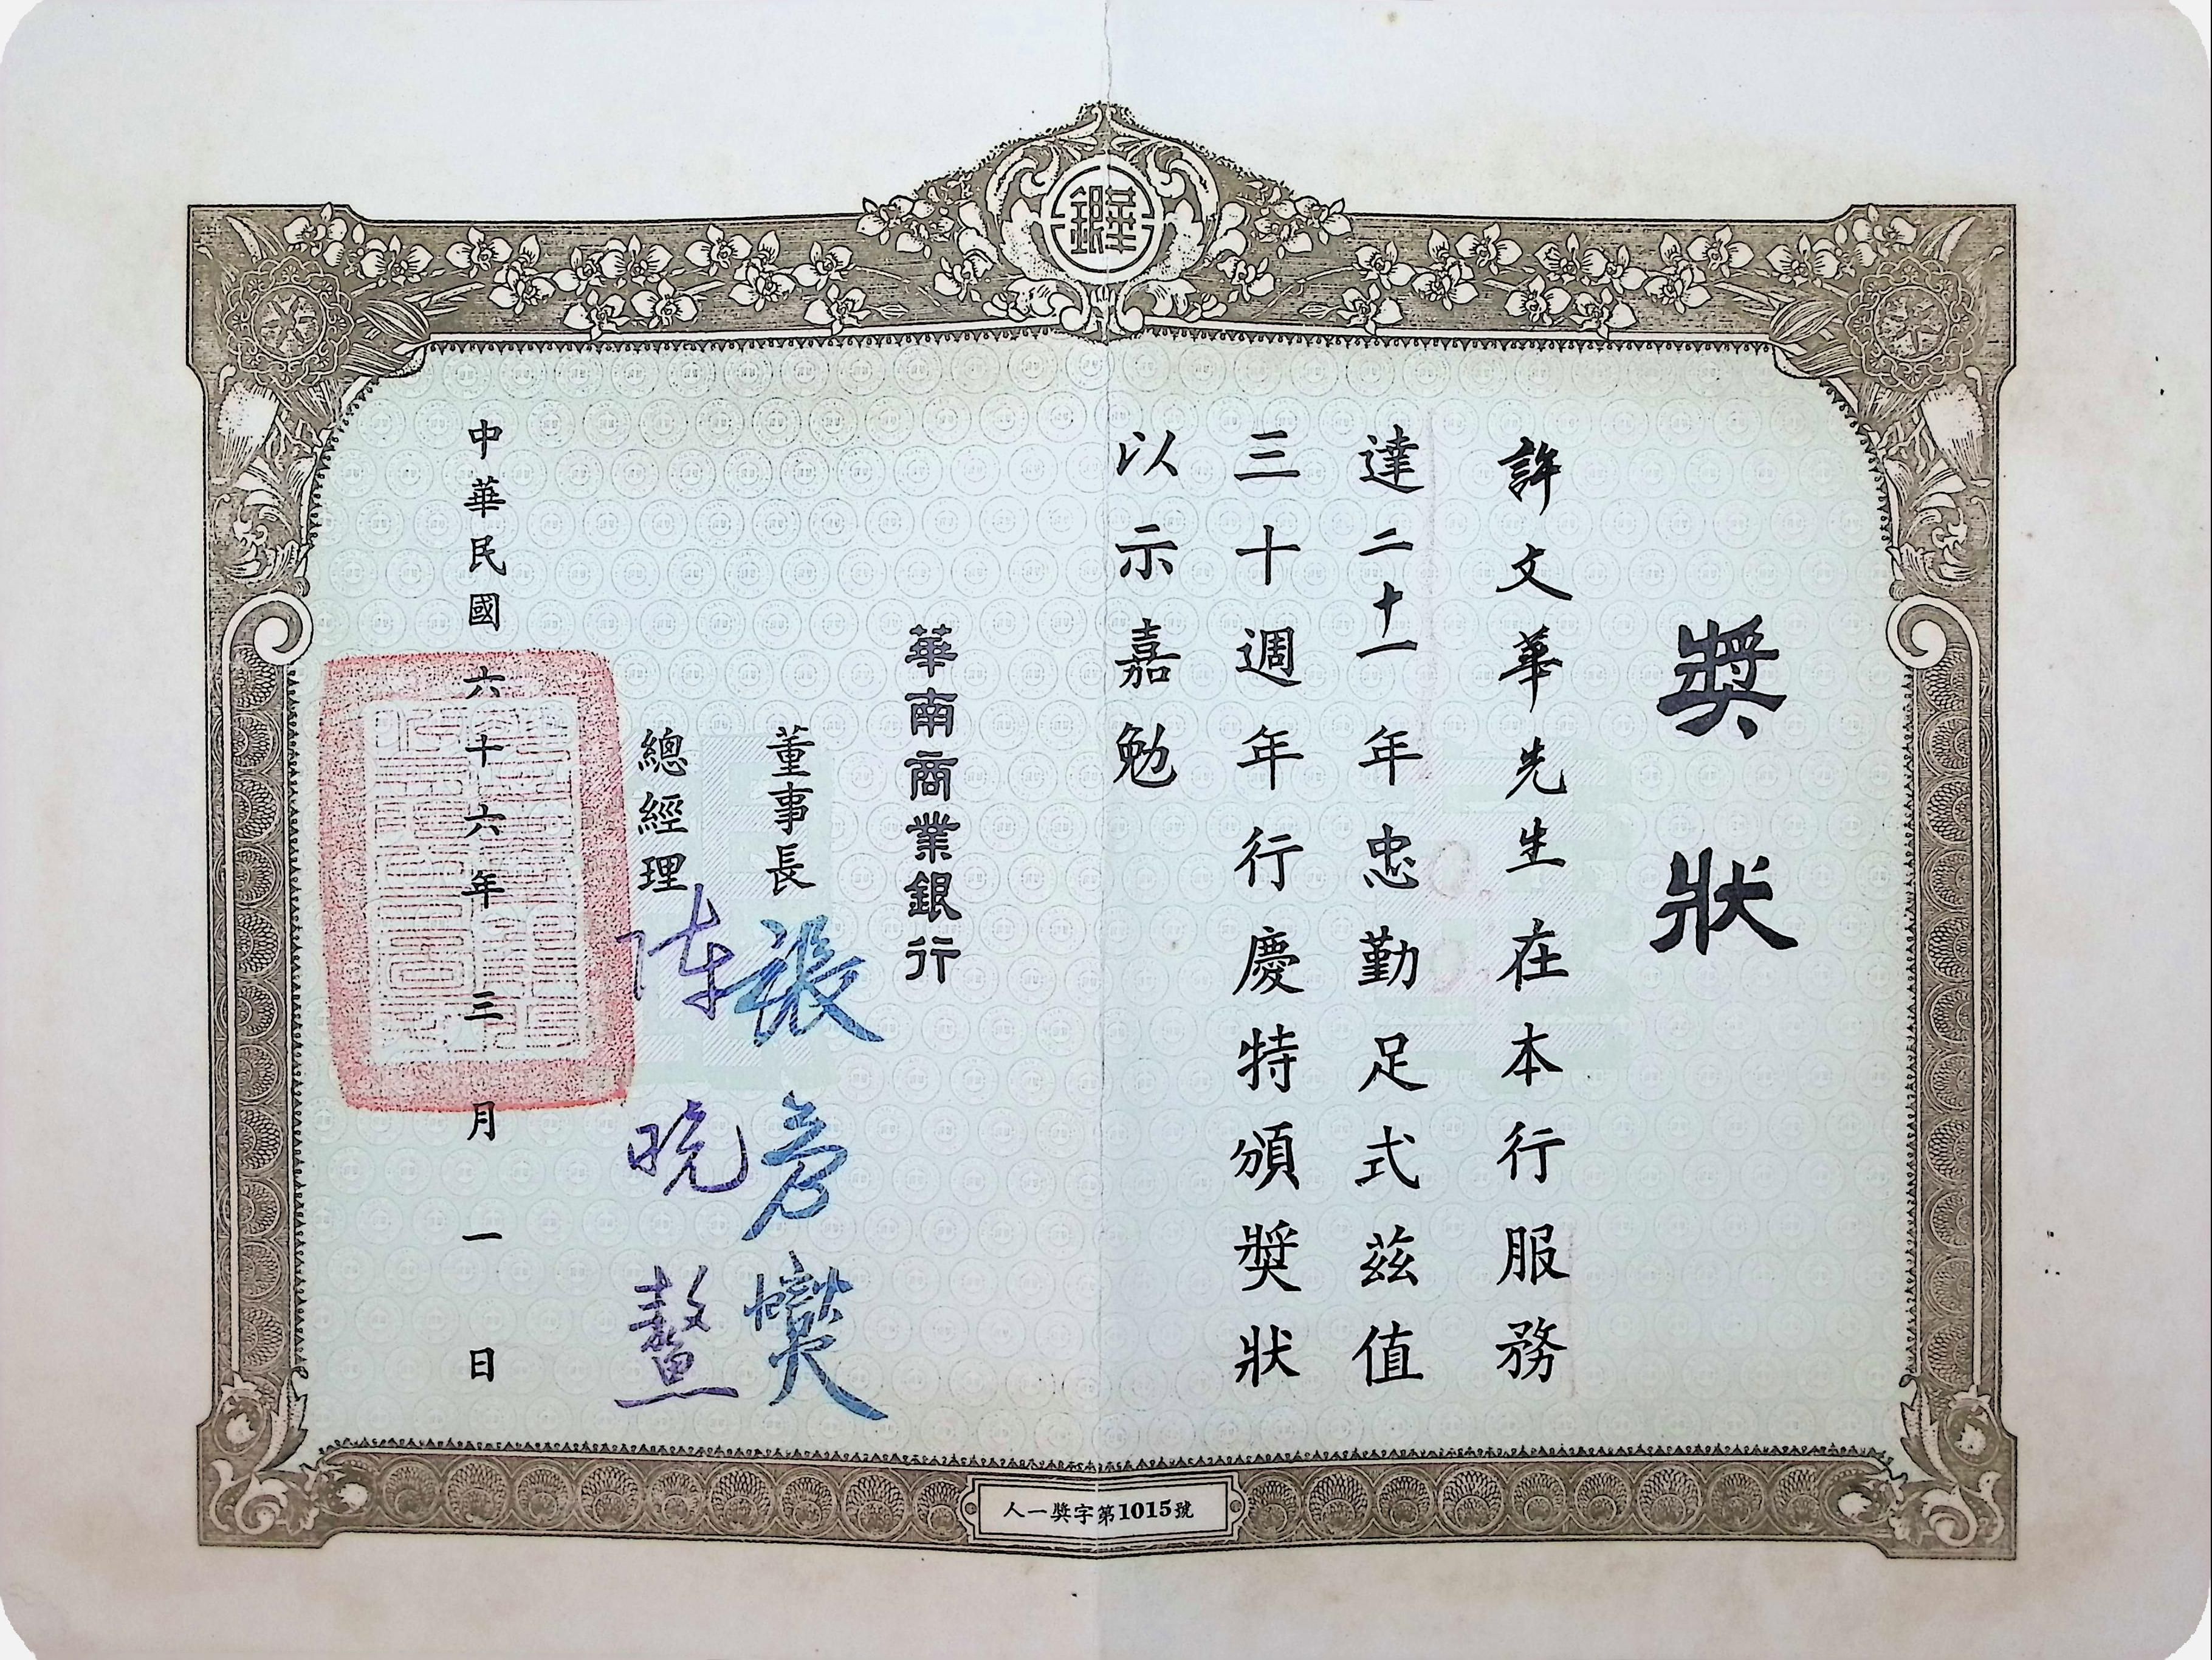 華銀
獎狀
許文華先生在本行服務
達二十一年忠勤足式茲值
三十週年行慶特頒獎狀
以示嘉勉
華南商業銀行
董事長 張彥
總經理 陈晚鰲
中華民國六十六年三月一日
人一獎字第1015號